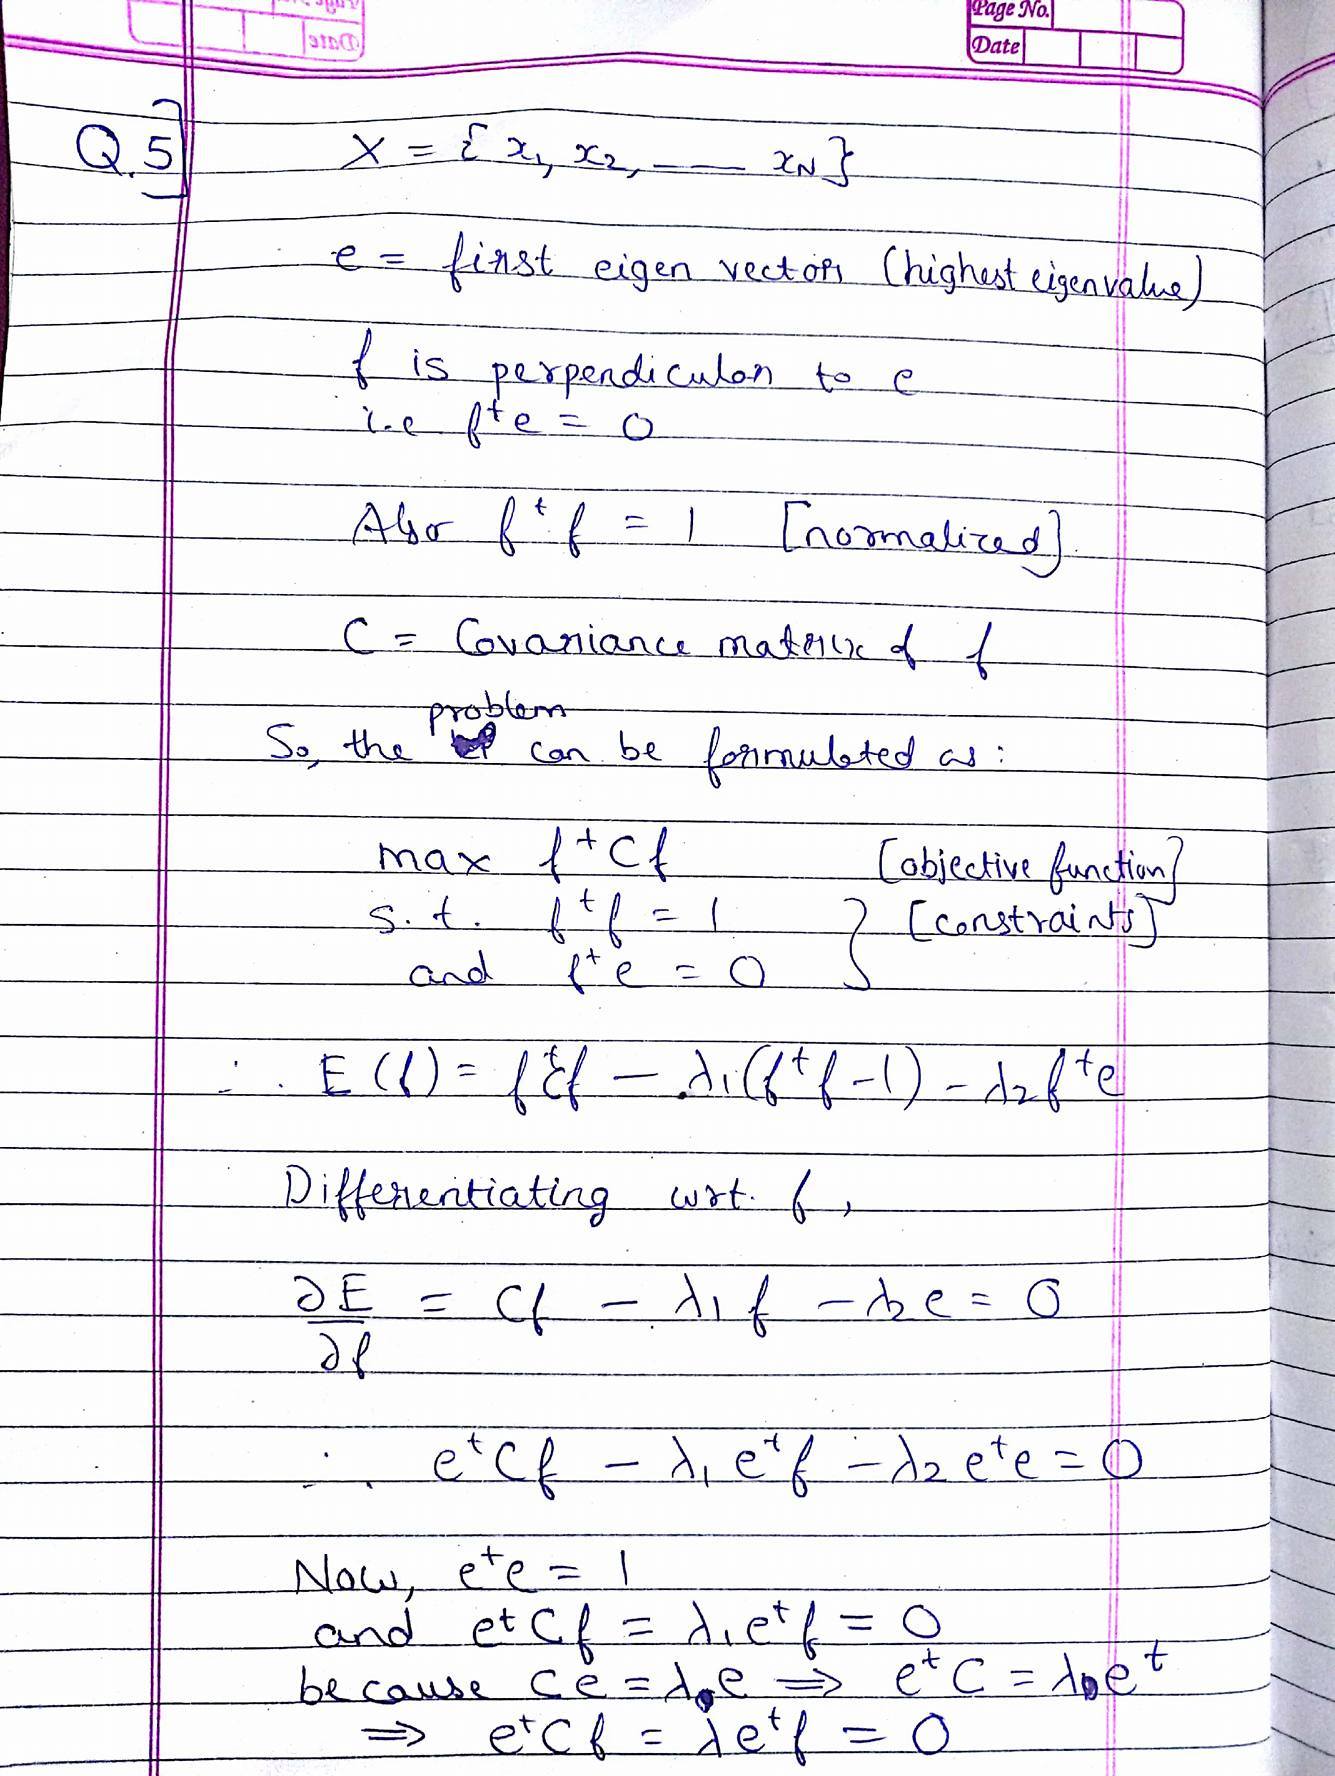 Page No.
Date
Q.5]
X = { x₁, x₂, —— xN }
e = first eigen vector (highest eigenvalue)
f is perpendicular to e
i.e fᵗe = 0
Also fᵗf = 1 [normalized]
C = Covariance matrix of f
problem
So, the can be formulated as:
max fᵗCf [objective function]
s.t. fᵗf = 1 } [constraints]
and fᵗe = 0
∴ E(f) = fᵗCf − λ₁(fᵗf−1) − λ₂fᵗe
Differentiating wrt. f,
∂E/∂f = Cf − λ₁f − λ₂e = 0
∴ eᵗCf − λ₁eᵗf − λ₂eᵗe = 0
Now, eᵗe = 1
and eᵗCf = λ₁eᵗf = 0
because Ce = λe ⟹ eᵗC = λeᵗ
⟹ eᵗCf = λeᵗf = 0